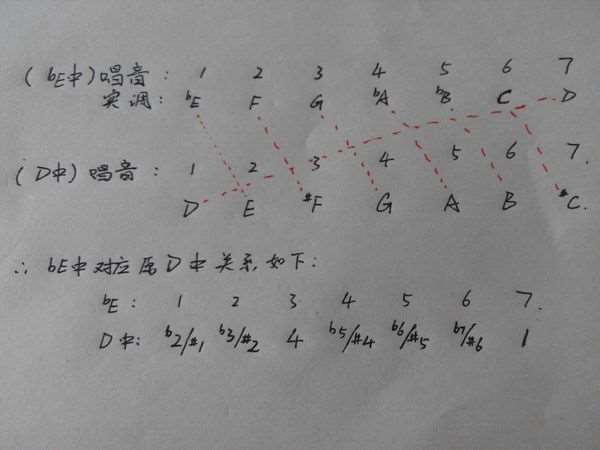 (ᵇE中)唱音: 1 2 3 4 5 6 7
实调: ᵇE F G ᵇA ᵇB C D
(D中)唱音: 1 2 3 4 5 6 7.
D E #F G A B #C.
∴ bE中对应虽D中关系如下:
ᵇE: 1 2 3 4 5 6 7.
D中: ᵇ2/#1 ᵇ3/#2 4 ᵇ5/#4 ᵇ6/#5 ᵇ7/#6 1